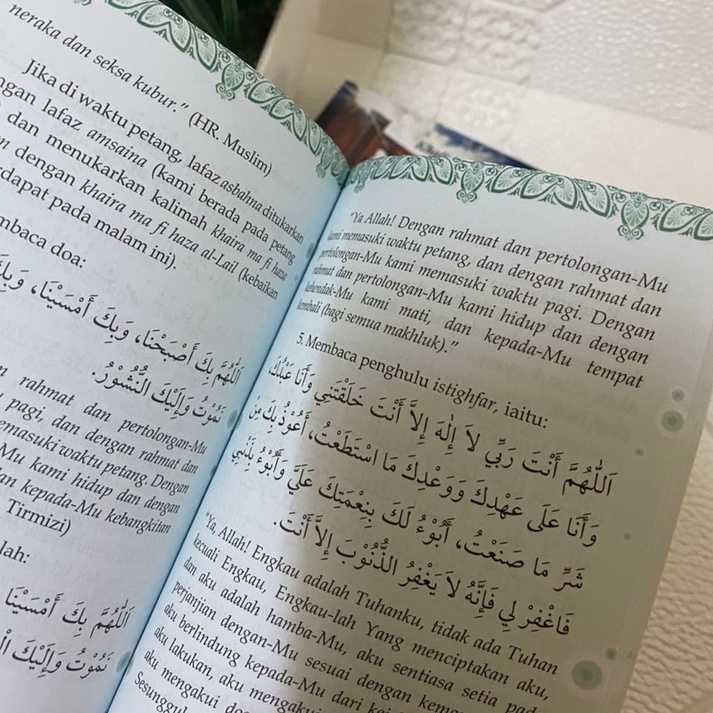 neraka dan seksa kubur.” (HR. Muslim)
Jika di waktu petang, lafaz asbahna ditukarkan
lafaz amsaina (kami berada pada petang
dan menukarkan kalimah khaira ma fi haza
dengan khaira ma fi haza al-Lail (kebaikan
pada malam ini).
doa:
اَللّٰهُمَّ بِكَ أَصْبَحْنَا، وَبِكَ أَمْسَيْنَا،
نَمُوْتُ وَإِلَيْكَ النُّشُوْرُ.
rahmat dan pertolongan-Mu
pagi, dan dengan rahmat dan
waktu petang. Dengan
kami hidup dan dengan
kepada-Mu kebangkitan
Tirmizi)
اَللّٰهُمَّ بِكَ أَمْسَيْنَا
نَمُوْتُ وَإِلَيْكَ
“Ya Allah! Dengan rahmat dan pertolongan-Mu
kami memasuki waktu petang, dan dengan rahmat dan
pertolongan-Mu kami memasuki waktu pagi. Dengan
rahmat dan pertolongan-Mu kami hidup dan dengan
kehendak-Mu kami mati, dan kepada-Mu tempat
kembali (bagi semua makhluk).”
5. Membaca penghulu istighfar, iaitu:
اَللّٰهُمَّ أَنْتَ رَبِّي لاَ إِلٰهَ إِلاَّ أَنْتَ خَلَقْتَنِي وَأَنَا عَبْدُكَ،
وَأَنَا عَلَى عَهْدِكَ وَوَعْدِكَ مَا اسْتَطَعْتُ، أَعُوْذُ بِكَ مِنْ
شَرِّ مَا صَنَعْتُ، أَبُوْءُ لَكَ بِنِعْمَتِكَ عَلَيَّ وَأَبُوْءُ بِذَنْبِي
فَاغْفِرْ لِي فَإِنَّهُ لاَ يَغْفِرُ الذُّنُوْبَ إِلاَّ أَنْتَ.
“Ya, Allah! Engkau adalah Tuhanku, tidak ada Tuhan
kecuali Engkau, Engkau-lah Yang menciptakan aku,
dan aku adalah hamba-Mu, aku sentiasa setia pada
perjanjian dengan-Mu sesuai dengan
aku berlindung kepada-Mu dari
aku lakukan, aku mengakui
aku mengakui